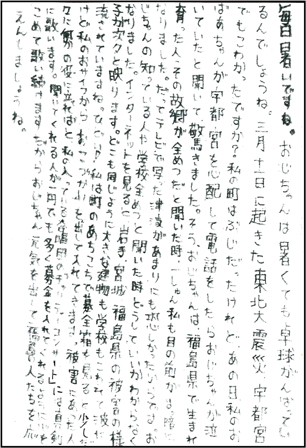 毎日暑いですね。おじちゃんは暑くても卓球がんばって
るんでしょうね。三月十一日に起きた東北大震災宇都宮
でもこわかったですか？私町はぶじだったけれど、あの日私のお
ばあちゃんが宇都宮を心配して電話をしたらおじちゃんが泣
いていたと聞いて驚きました。そうおじちゃんは福島県で生まれ
育った人、その故郷が全めつだと聞いた時、一しゅん私も目の前が
なりました。だってテレビで写った津波があまりにも恐しかったからです。お
じちゃんの知っている人や学校全めつと聞いた時どうしていいかわからなく
なりました。インターネットを見ると岩手、宮城、福島県の被害の様
子が次々と映ります。どこも同じように大きな建物も学校もこわれ、波に
流されていますね。ひどい？私は町のあちこちで募金箱を見ると少しだ
けど私のおサイフからおこづかいを出して入れてきます。被害にあった人
々に何かの役に立てればと私の入っている
に歌います。聞いてくれる人が一円でも多く募金を入れてくれるように心を
こめて歌い続けます。だからおじちゃん元気を出して
えんしましょうね。